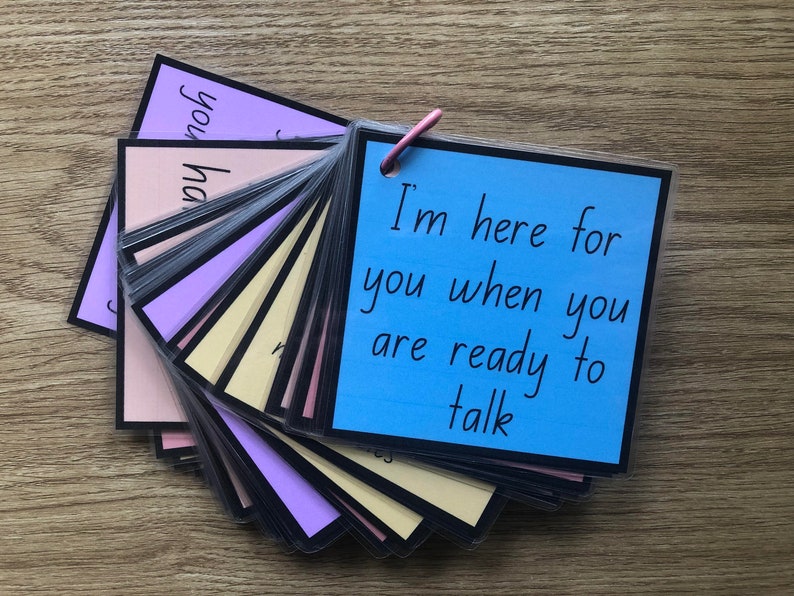 I'm here for
you when you
are ready to
talk
you
ha